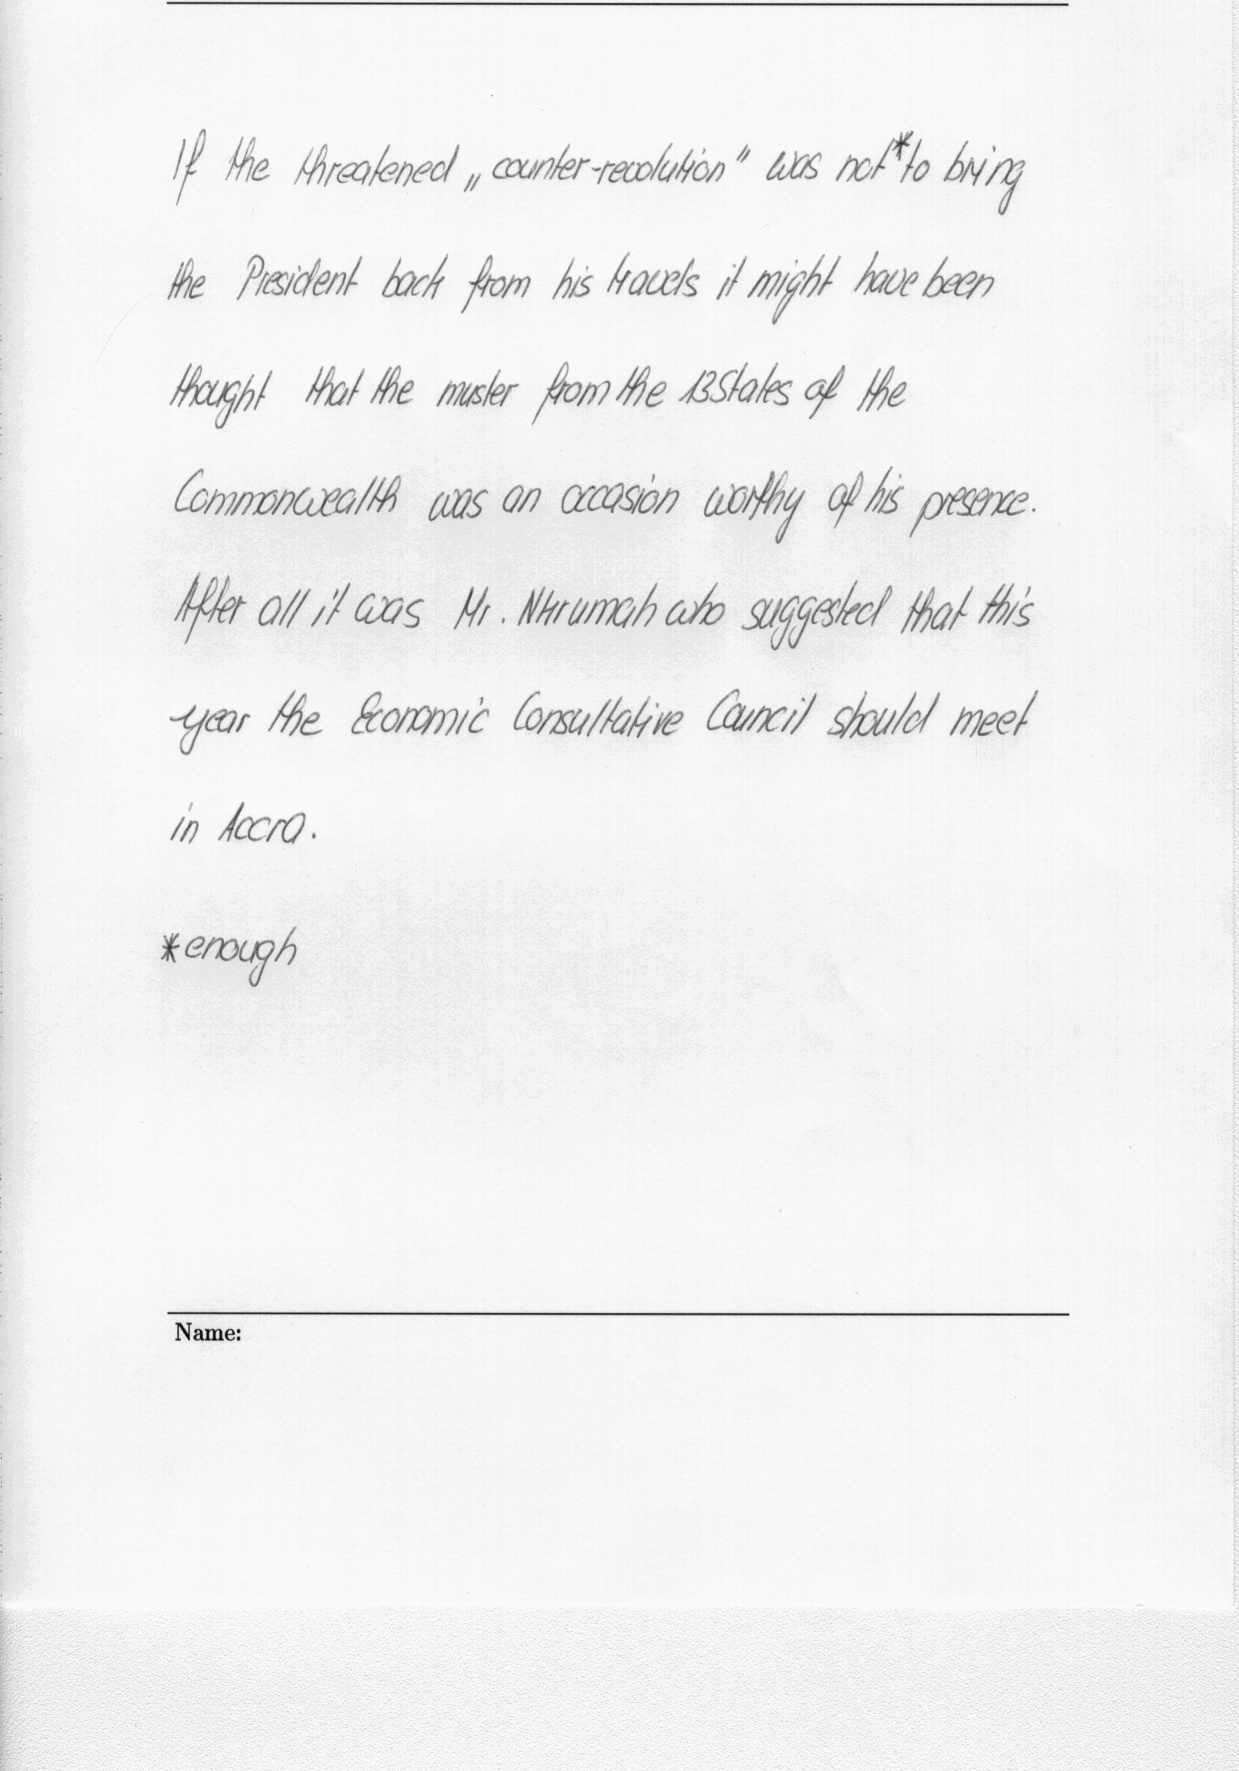 If the threatened „counter-revolution" was not* to bring
the President back from his travels it might have been
thought that the muster from the 13 States of the
Commonwealth was an occasion worthy of his presence.
After all it was Mr. Nkrumah who suggested that this
year the Economic Consultative Council should meet
in Accra.
*enough
Name: